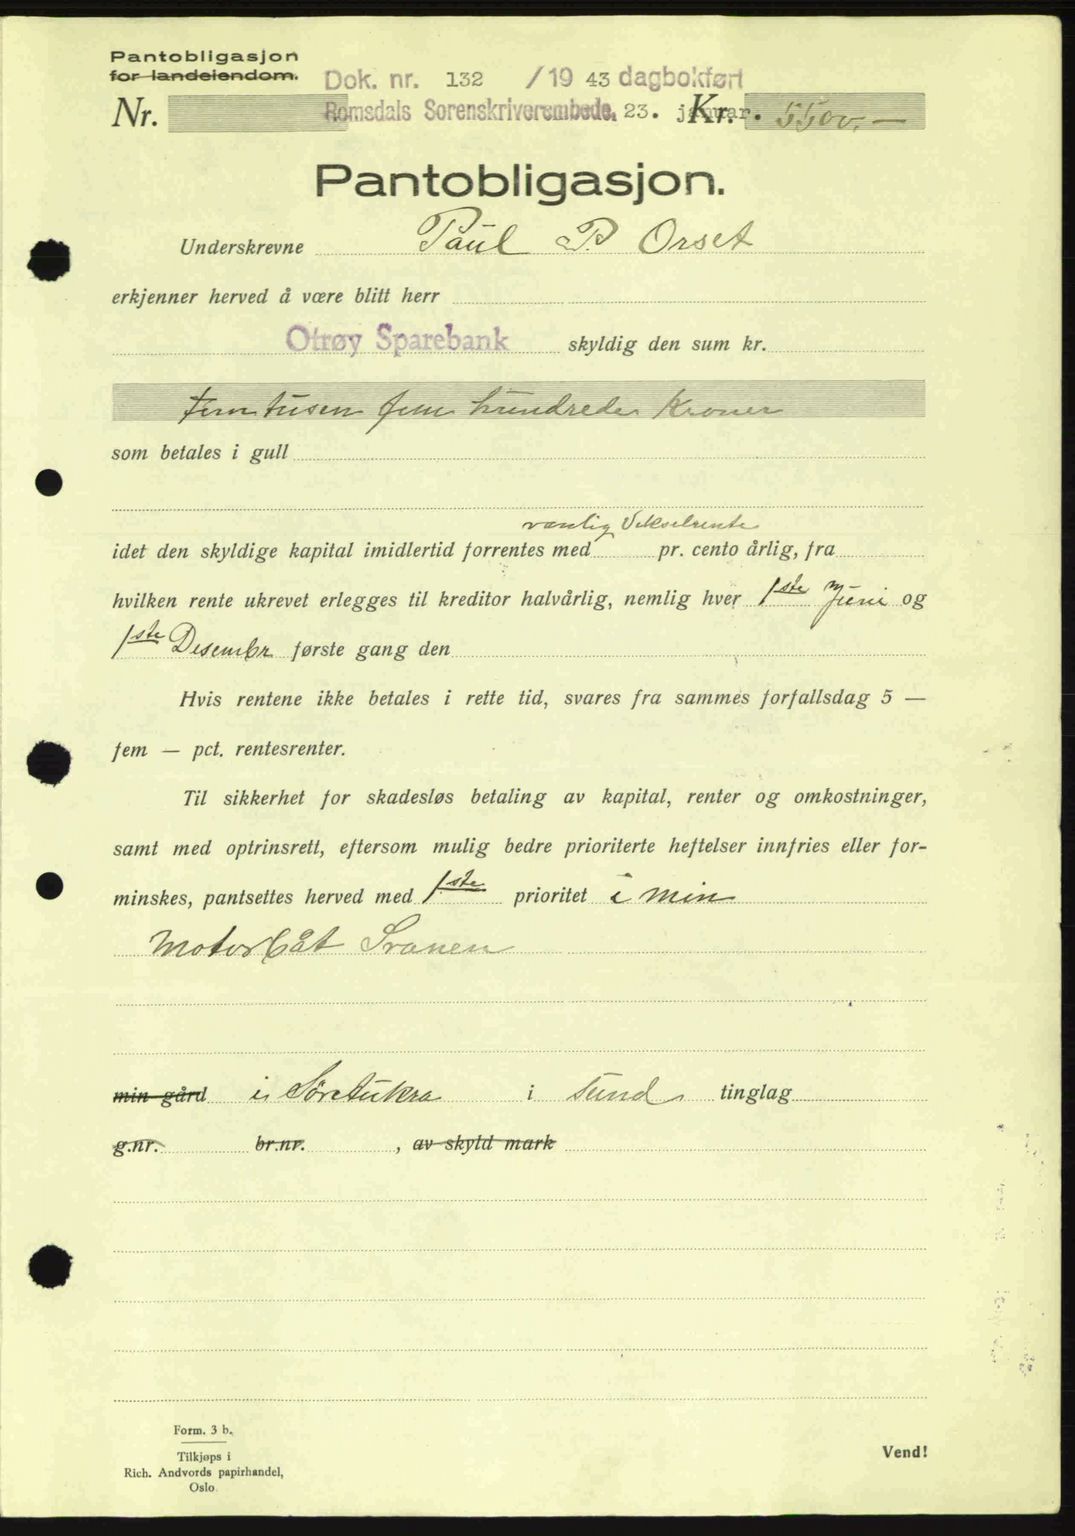 Pantobligasjon
for landeiendom.
Dok. nr. 132 /19 43 dagbokført
Nr. Romsdals Sorenskriverembede, 23. januar. Kr. 5500.—
Pantobligasjon.
Underskrevne Paul P Orset
erkjenner herved å være blitt herr
Otrøy Sparebank skyldig den sum kr.
fem tusen fem hundreder Kroner
som betales i gull
vanlig Vekselrente
idet den skyldige kapital imidlertid forrentes med pr. cento årlig, fra
hvilken rente ukrevet erlegges til kreditor halvårlig, nemlig hver 1ste Juni og
1ste Desembr første gang den
Hvis rentene ikke betales i rette tid, svares fra sammes forfallsdag 5 —
fem — pct. rentesrenter.
Til sikkerhet for skadesløs betaling av kapital, renter og omkostninger,
samt med optrinsrett, eftersom mulig bedre prioriterte heftelser innfries eller for-
minskes, pantsettes herved med 1ste prioritet i min
Motorbåt Svanen
min gård i Søretukra i Sund tinglag
g.nr. br.nr. , av skyld mark
Form. 3 b.
Tilkjøps i
Rich. Andvords papirhandel,
Oslo
Vend!